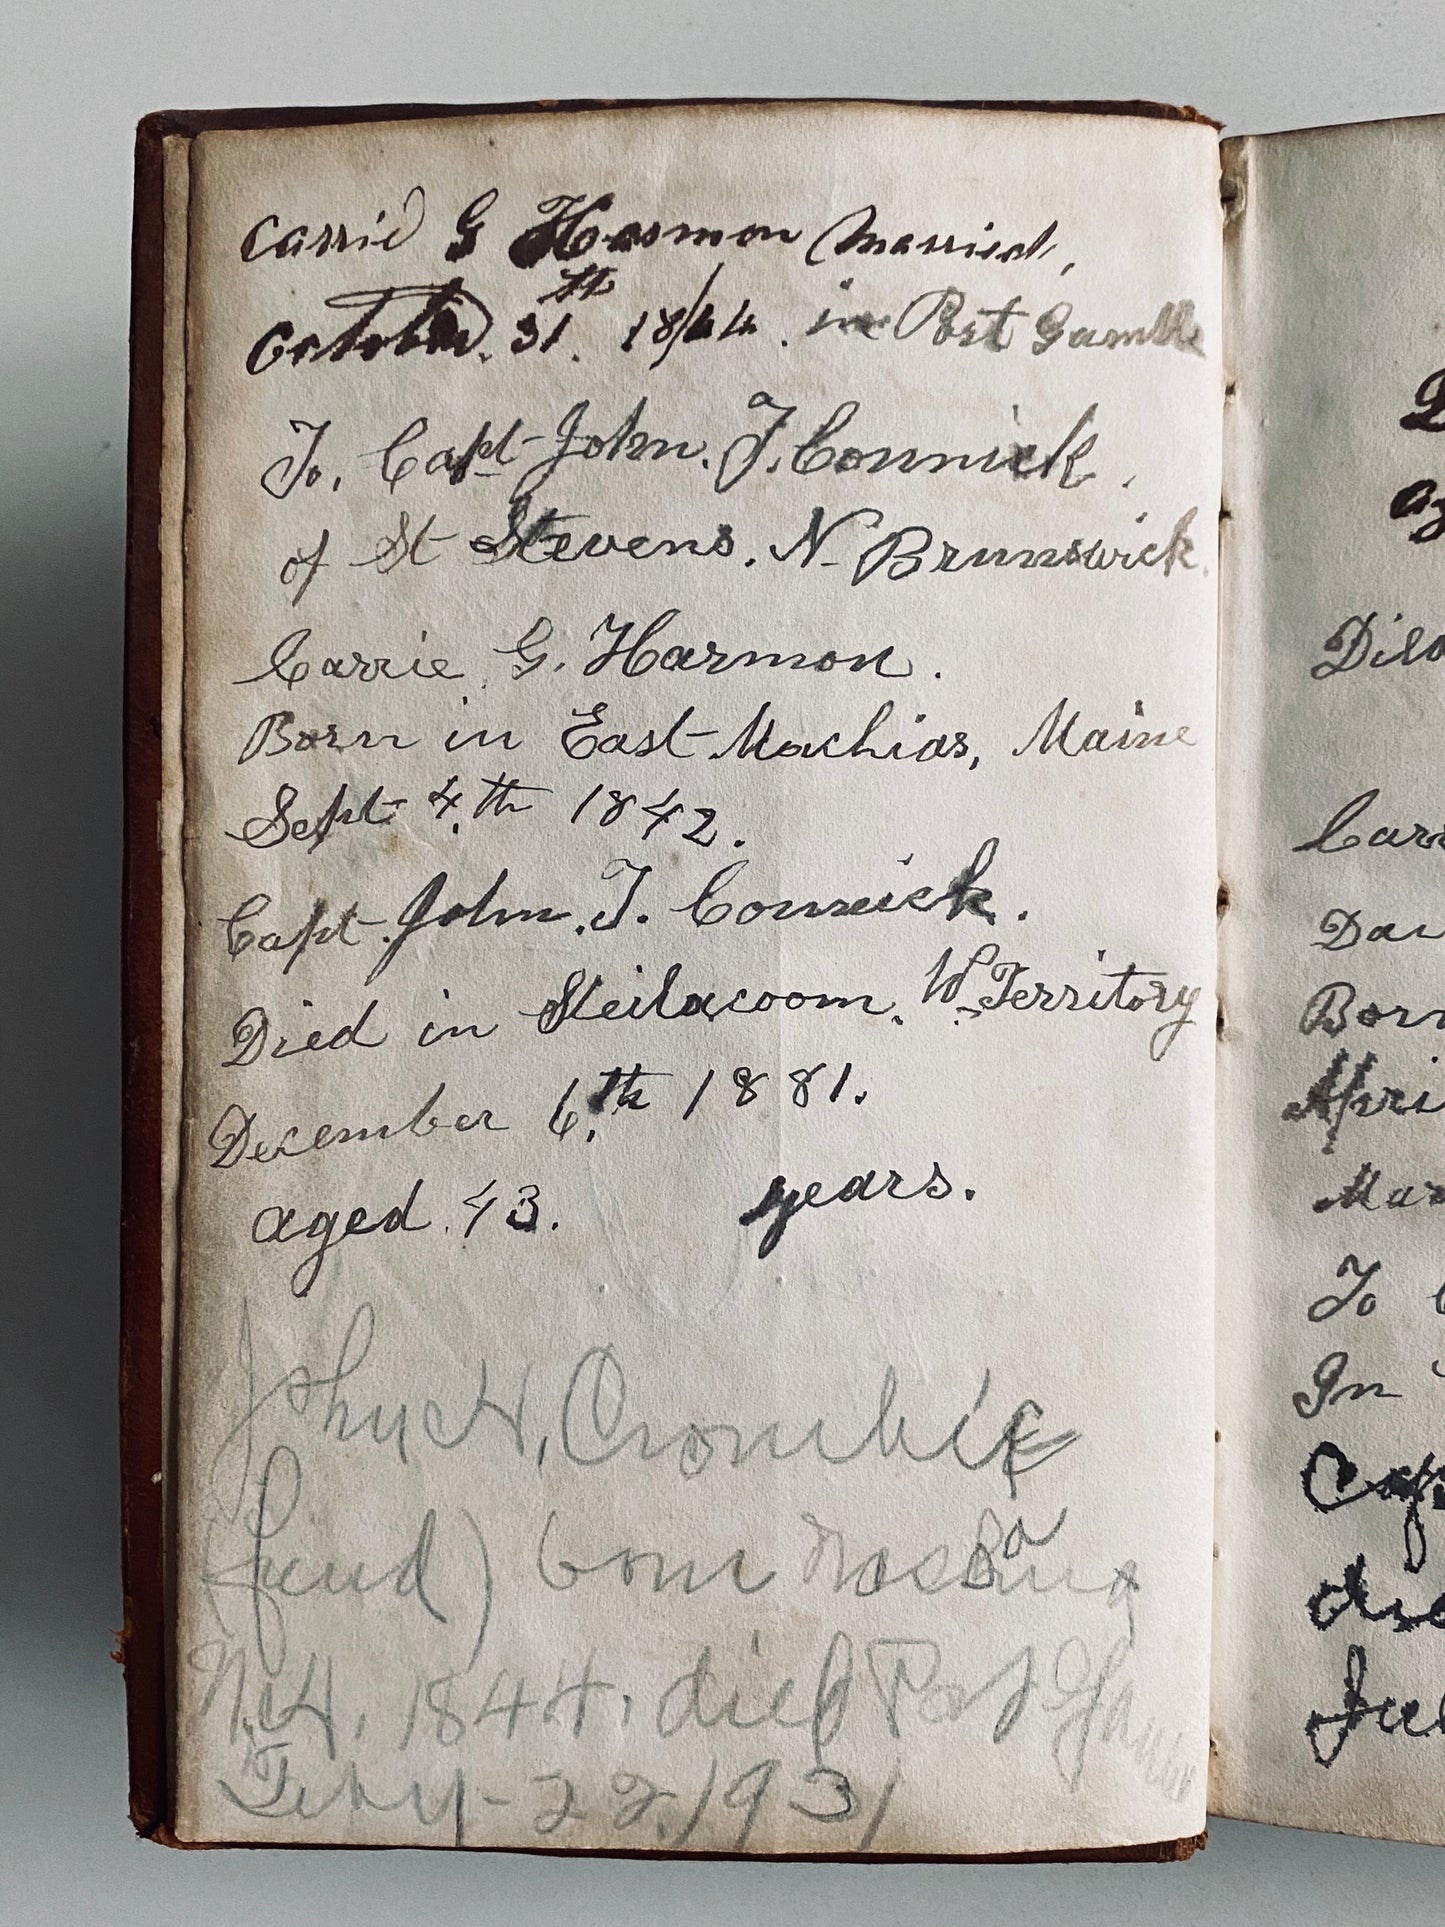 Carrie G Harmon Married,
October. 31th. 1864. in Port Gamble
To, Capt John. T. Connick.
of St Stevens. N- Brunswick.
Carrie G. Harmon.
Born in East Machias, Maine
Sept 4.th 1842.
Capt. John. T. Connick.
Died in Steilacoom. W-Territory
December 6.th 1881.
aged 43. years.
John H, Crombie
) born
N.H. 1844. died Port Gamble
Feby-22.1931
D
ag
Dilo
Carr
Dav
Born
Apri
Mar
To C
In
Cap
die